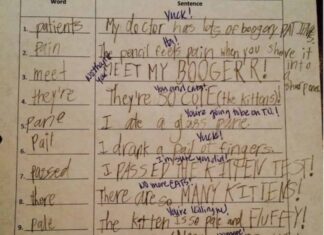 Word Sentence
Yuck!
1. patients My doctor has lots of boogery PATIENTS
Ha!
2. Pain The pencil feels pain when you shove it into a sharpener
No thank you!
3. meet MEET MY BOOGERR!
You and cats!
4. they're They're SO CUTE (the kittens)!
You're going to be on T.V.!
5. pane I ate a glass pane.
Yuck!
6. Pail I drank a pail of fingers.
I'm sure you did!
7. passed I PASSED THE KITTEN TEST!
No more CATS!
8. there There are so MANY KITTENS!
You're killing me!
9. pale The kitten is so pale and FLUFFY!